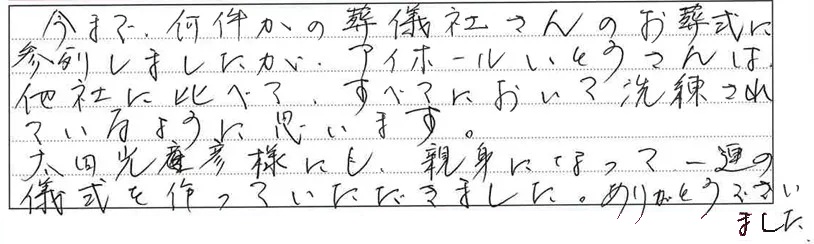 今まで、何件かの葬儀社さんのお葬式に
参列しましたが、アイホールいとうさんは、
他社に比べて、すべてにおいて洗練され
ているように思います。
太田光彦様にも、親身になって一連の
儀式を作っていただきました。ありがとうござい
ました。